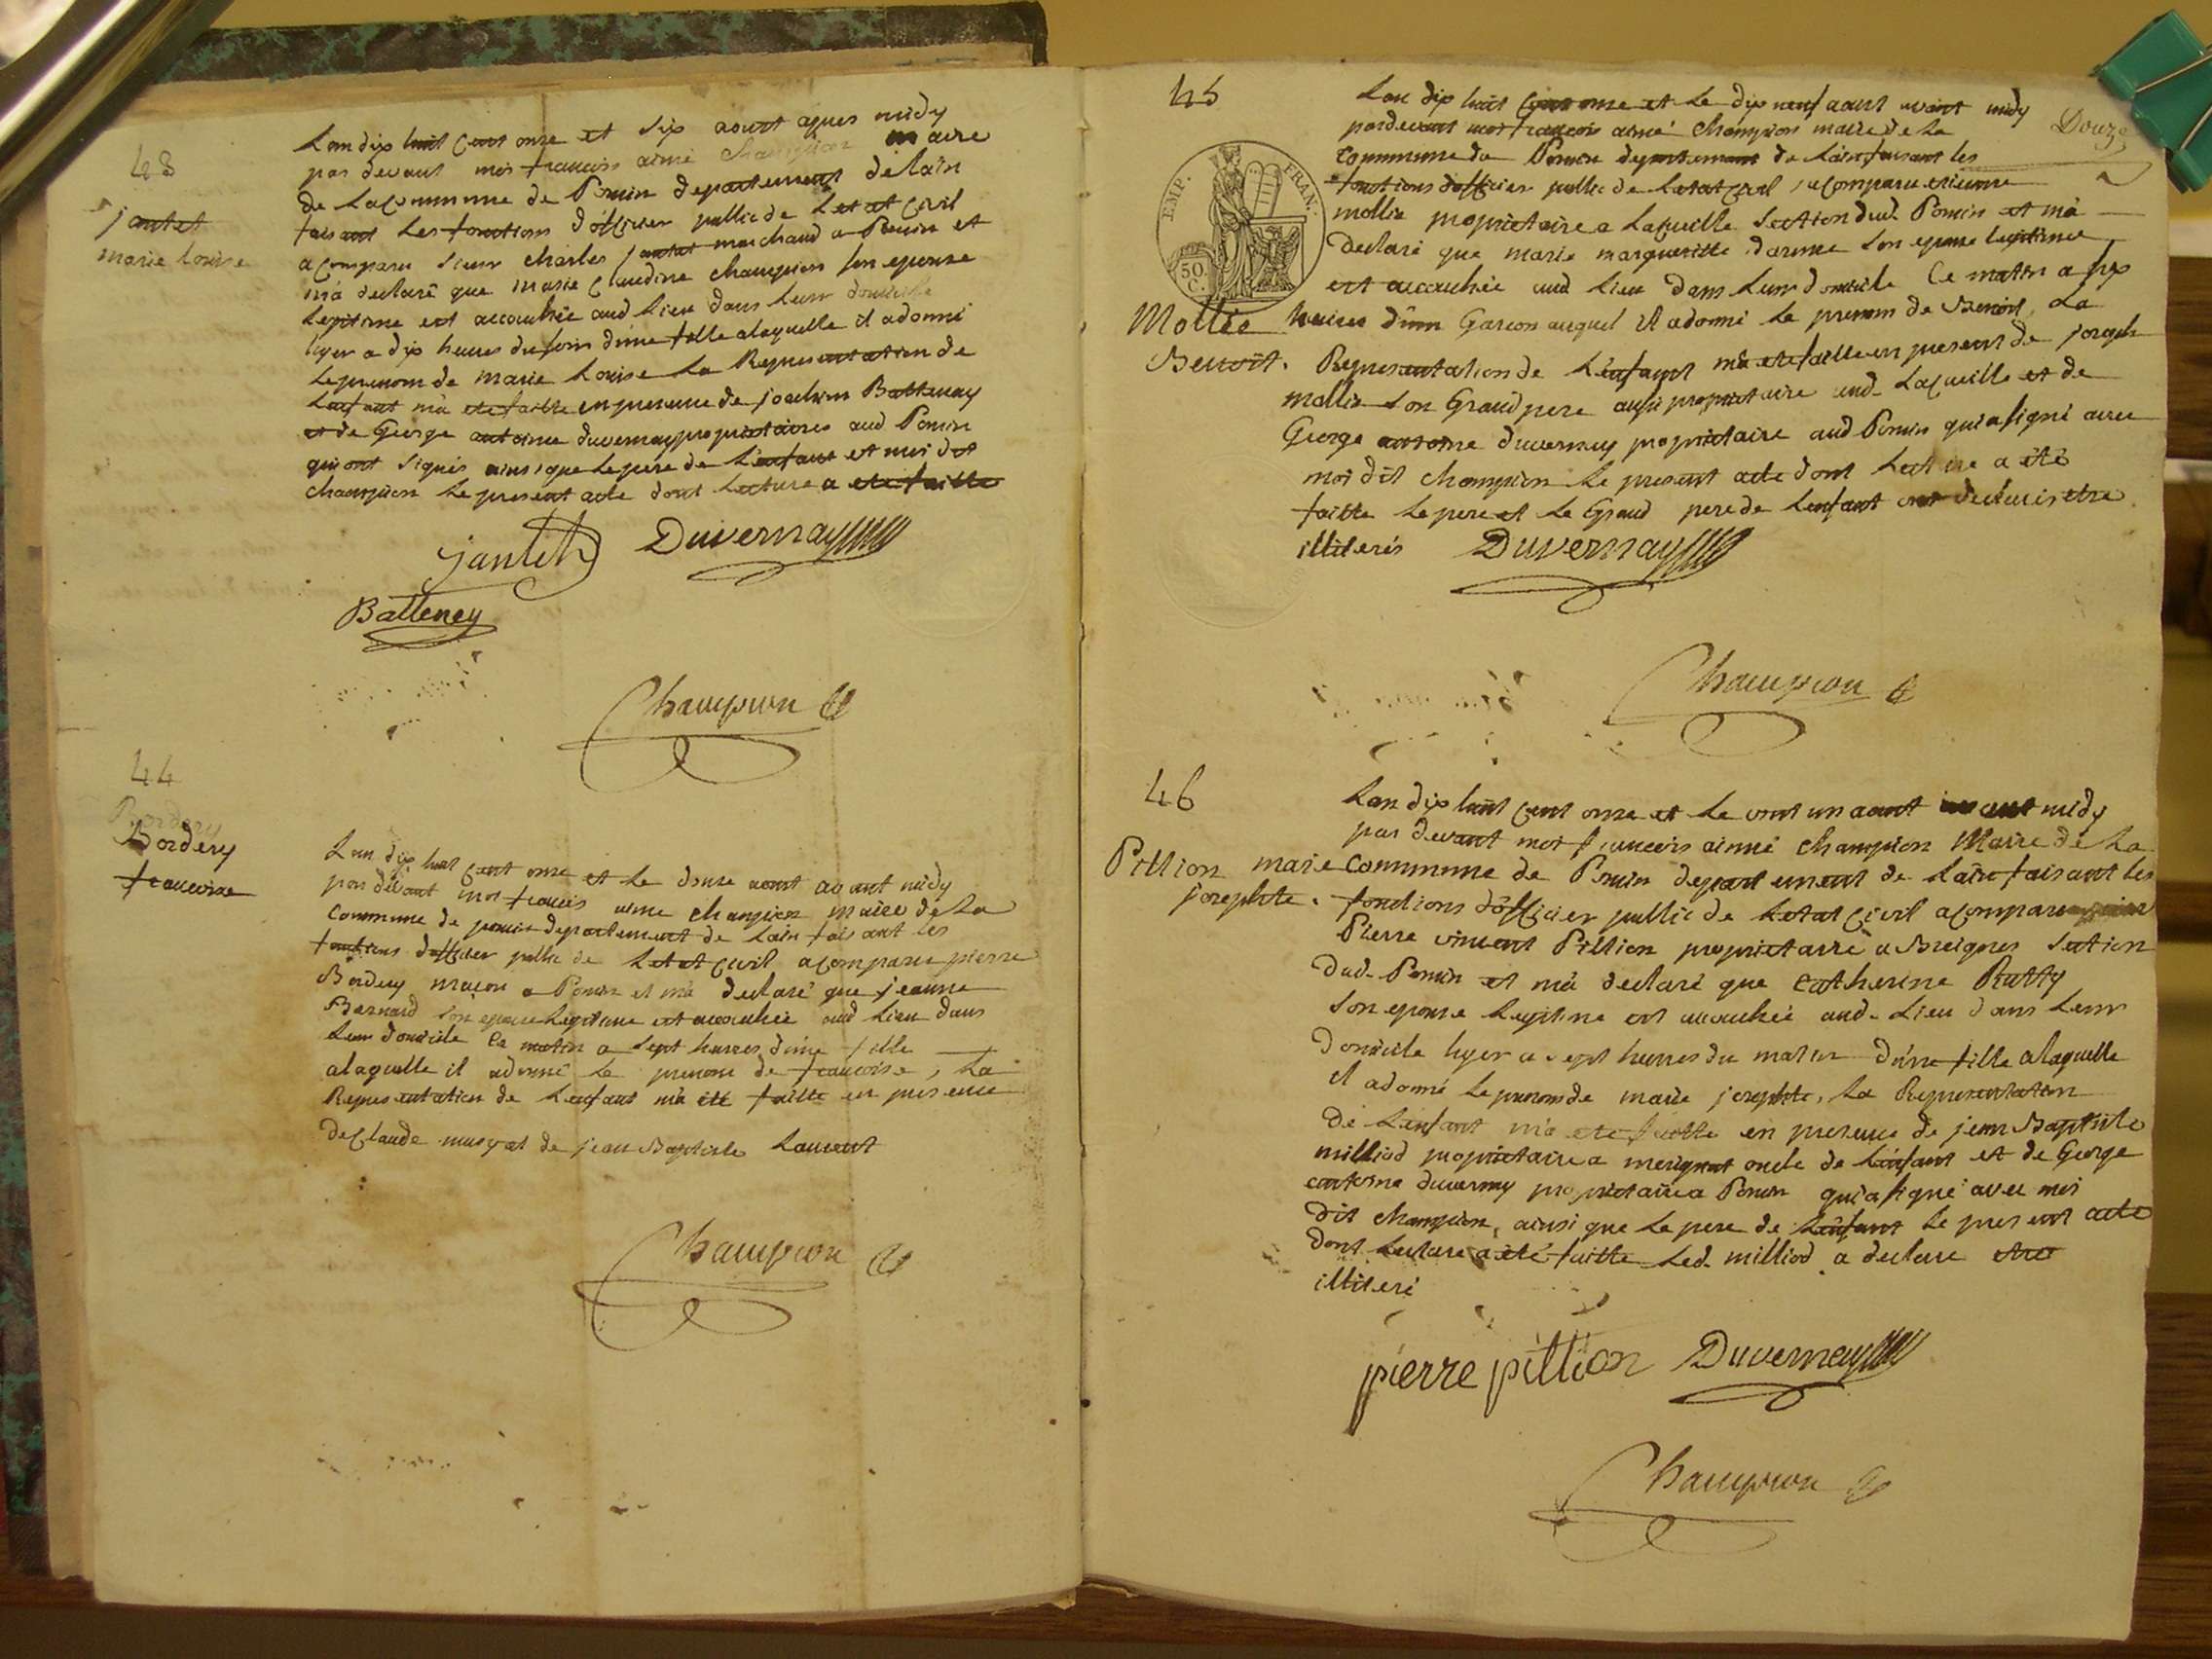 43
jantet
marie Louise
Lan dix huit cent onze et six aout apres midy
par devant moi francois aimé Champion maire
de La commune de Poncin departement de lain
faisant les fonctions d'officier public de Letat civil
a comparu sieur charles jantet marchand a Poncin et
m'a declaré que marie Claudine champion son epouse
legitime est accouchée aud lieu dans leur domicile
hyer a dix heures du soir d'une fille alaquelle il adonné
Le prenom de marie Louise La Representation de
Lenfant m'a eté faitte en presence de joachim Batteney
et de George antoine duvernay proprietaires aud Poncin
qui ont signés ainsi que Le pere de Lenfant et moi dit
champion Le present acte dont Lecture a eté faitte
jantet Duvernay
Batteney
Champion
44
Bordery
Bordery
francoise
Lan dix huit cent onze et Le douze aout avant midy
par devant moi francois aimé champion maire de La
commune de poncin departement de Lain faisant les
fonctions d'officier public de Letat civil acomparu pierre
Bordery maçon a Poncin et m'a declaré que jeanne
Bernard son epouse Legitime est accouchée aud Lieu dans
Leur domicile Ce matin a sept heures d'une fille
alaquelle il adonné Le prenom de francoise, La
Representation de Lenfant m'a eté faitte en presence
de Claude et de jean Baptiste Laurent
Champion
45
Douze
EMP. FRAN.
50 C.
Mollie
Benoît.
Lan dix huit cent onze et Le dix neuf aout avant midy
pardevant moi francois aimé Champion maire de La
Commune de Poncin departement de Lain faisant les
fonctions d'officier public de Letat civil, acomparu etienne
mollie proprietaire a Lacueille section dud. Poncin et m'a
declaré que marie margueritte darme son epouse legitime
est accouchée aud Lieu dans Leur domicile Ce matin a six
heures d'un Garcon auquel il adonné Le prenom de Benoit, La
Representation de Lenfant m'a eté faitte en present de joseph
mollie son Grand pere aussi proprietaire aud. Lacueille et de
George antoine duvernay proprietaire aud Poncin qui a signé avec
moi dit champion Le present acte dont Lecture a été
faitte Le pere et Le Grand pere de Lenfant ont declarés etre
illiterés Duvernay
Champion
46
Pittion marie
josephte.
Lan dix huit cent onze et Le vint un aout avant midy
par devant moi francois aimé champion Maire de La
Commune de Poncin departement de Lain faisant les
fonctions d'officier public de Letat civil acomparu
Pierre vincent Pittion proprietaire a Breignes section
dud. Poncin et m'a declaré que Catherine Rutty
son epouse Legitime est accouchée aud. Lieu dans Leur
domicile hyer a sept heures du matin d'une fille alaquelle
il adonné Le prenom de marie josephte, La Representation
de Lenfant m'a eté faitte en presence de jean Baptiste
milliod proprietaire a merignat oncle de Lenfant et de George
antoine duvernay proprietaire a Poncin qui a signé avec moi
dit champion, ainsi que Le pere de Lenfant Le present acte
dont Lecture a été faitte Led. milliod a declare etre
illiteré
pierre pittion Duvernay
Champion